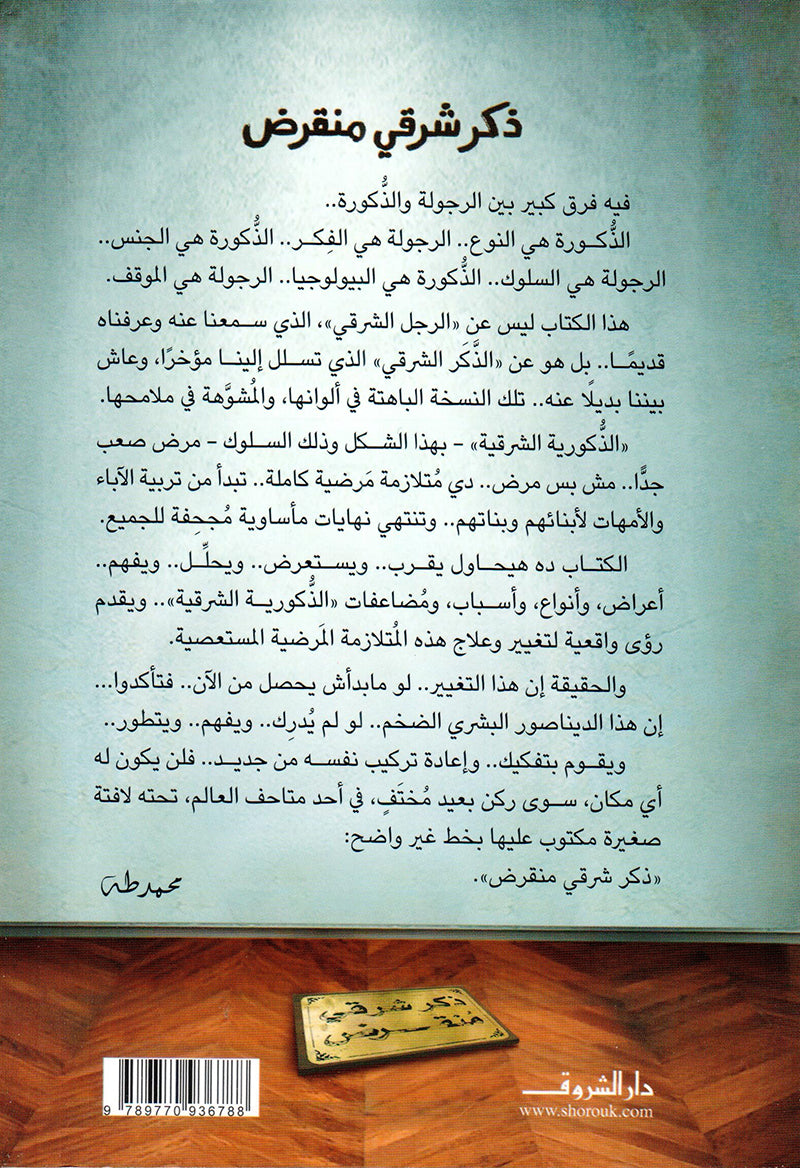 ذكر شرقي منقرض
فيه فرق كبير بين الرجولة والذُّكورة..
الذُّكورة هي النوع.. الرجولة هي الفِكر.. الذُّكورة هي الجنس..
الرجولة هي السلوك.. الذُّكورة هي البيولوجيا.. الرجولة هي الموقف.
هذا الكتاب ليس عن «الرجل الشرقي»، الذي سمعنا عنه وعرفناه
قديمًا.. بل هو عن «الذَّكَر الشرقي» الذي تسلل إلينا مؤخرًا، وعاش
بيننا بديلًا عنه.. تلك النسخة الباهتة في ألوانها، والمُشوَّهة في ملامحها.
«الذُّكورية الشرقية» – بهذا الشكل وذلك السلوك – مرض صعب
جدًّا.. مش بس مرض.. دي مُتلازمة مَرضية كاملة.. تبدأ من تربية الآباء
والأمهات لأبنائهم وبناتهم.. وتنتهي نهايات مأساوية مُجحِفة للجميع.
الكتاب ده هيحاول يقرب.. ويستعرض.. ويحلِّل.. ويفهم..
أعراض، وأنواع، وأسباب، ومُضاعفات «الذُّكورية الشرقية».. ويقدم
رؤى واقعية لتغيير وعلاج هذه المُتلازمة المَرضية المستعصية.
والحقيقة إن هذا التغيير.. لو مابدأش يحصل من الآن.. فتأكدوا...
إن هذا الديناصور البشري الضخم.. لو لم يُدرِك.. ويفهم.. ويتطور..
ويقوم بتفكيك.. وإعادة تركيب نفسه من جديد.. فلن يكون له
أي مكان، سوى ركن بعيد مُختَفٍ، في أحد متاحف العالم، تحته لافتة
صغيرة مكتوب عليها بخط غير واضح:
«ذكر شرقي منقرض».
محمد طه
ذكر شرقي
منقرض
9 789770 936788
دار الشروق
www.shorouk.com